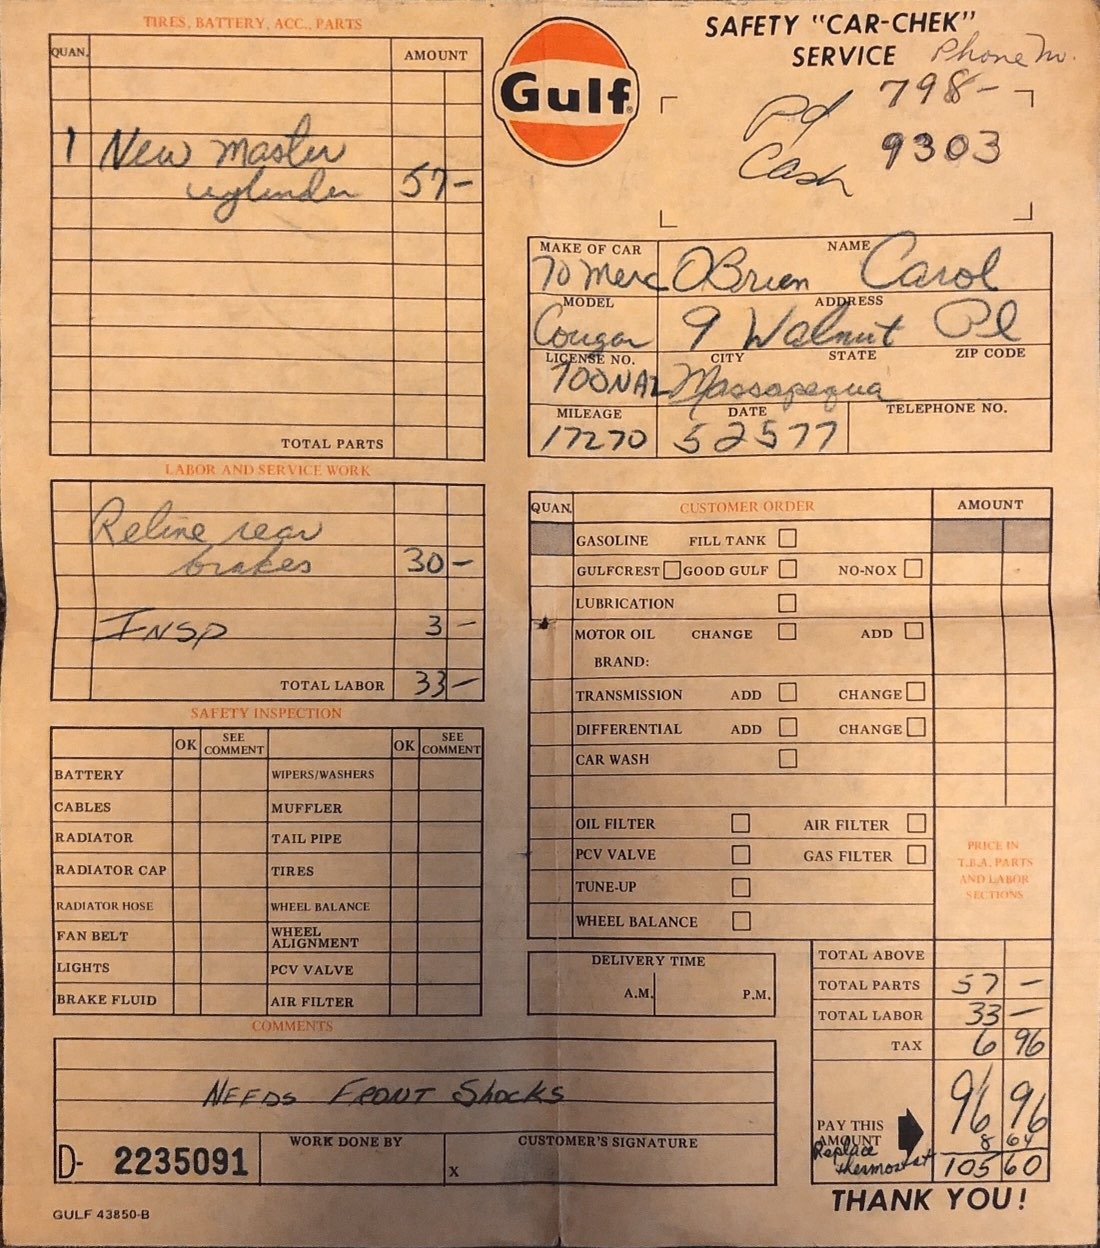 TIRES, BATTERY, ACC., PARTS
QUAN. AMOUNT
1 New master
cylinder 57-
TOTAL PARTS
LABOR AND SERVICE WORK
Reline rear
brakes 30-
INSP 3-
TOTAL LABOR 33-
SAFETY INSPECTION
OK SEE COMMENT OK SEE COMMENT
BATTERY WIPERS/WASHERS
CABLES MUFFLER
RADIATOR TAIL PIPE
RADIATOR CAP TIRES
RADIATOR HOSE WHEEL BALANCE
FAN BELT WHEEL ALIGNMENT
LIGHTS PCV VALVE
BRAKE FLUID AIR FILTER
COMMENTS
NEEDS FRONT Shocks
D- 2235091 WORK DONE BY CUSTOMER'S SIGNATURE
X
GULF 43850-B
Gulf
SAFETY "CAR-CHEK"
SERVICE Phone No.
Pd 798-
Cash 9303
MAKE OF CAR NAME
70 Merc OBrien Carol
MODEL ADDRESS
Cougar 9 Walnut Pl
LICENSE NO. CITY STATE ZIP CODE
700NAL Massapequa
MILEAGE DATE TELEPHONE NO.
17270 52577
QUAN. CUSTOMER ORDER AMOUNT
GASOLINE FILL TANK
GULFCREST GOOD GULF NO-NOX
LUBRICATION
MOTOR OIL CHANGE ADD
BRAND:
TRANSMISSION ADD CHANGE
DIFFERENTIAL ADD CHANGE
CAR WASH
OIL FILTER AIR FILTER
PCV VALVE GAS FILTER
TUNE-UP
WHEEL BALANCE
PRICE IN
T.B.A. PARTS
AND LABOR
SECTIONS
DELIVERY TIME
A.M. P.M.
TOTAL ABOVE
TOTAL PARTS 57 -
TOTAL LABOR 33 -
TAX 6 96
PAY THIS AMOUNT 96 96
8 64
Replace thermostat 105 60
THANK YOU!